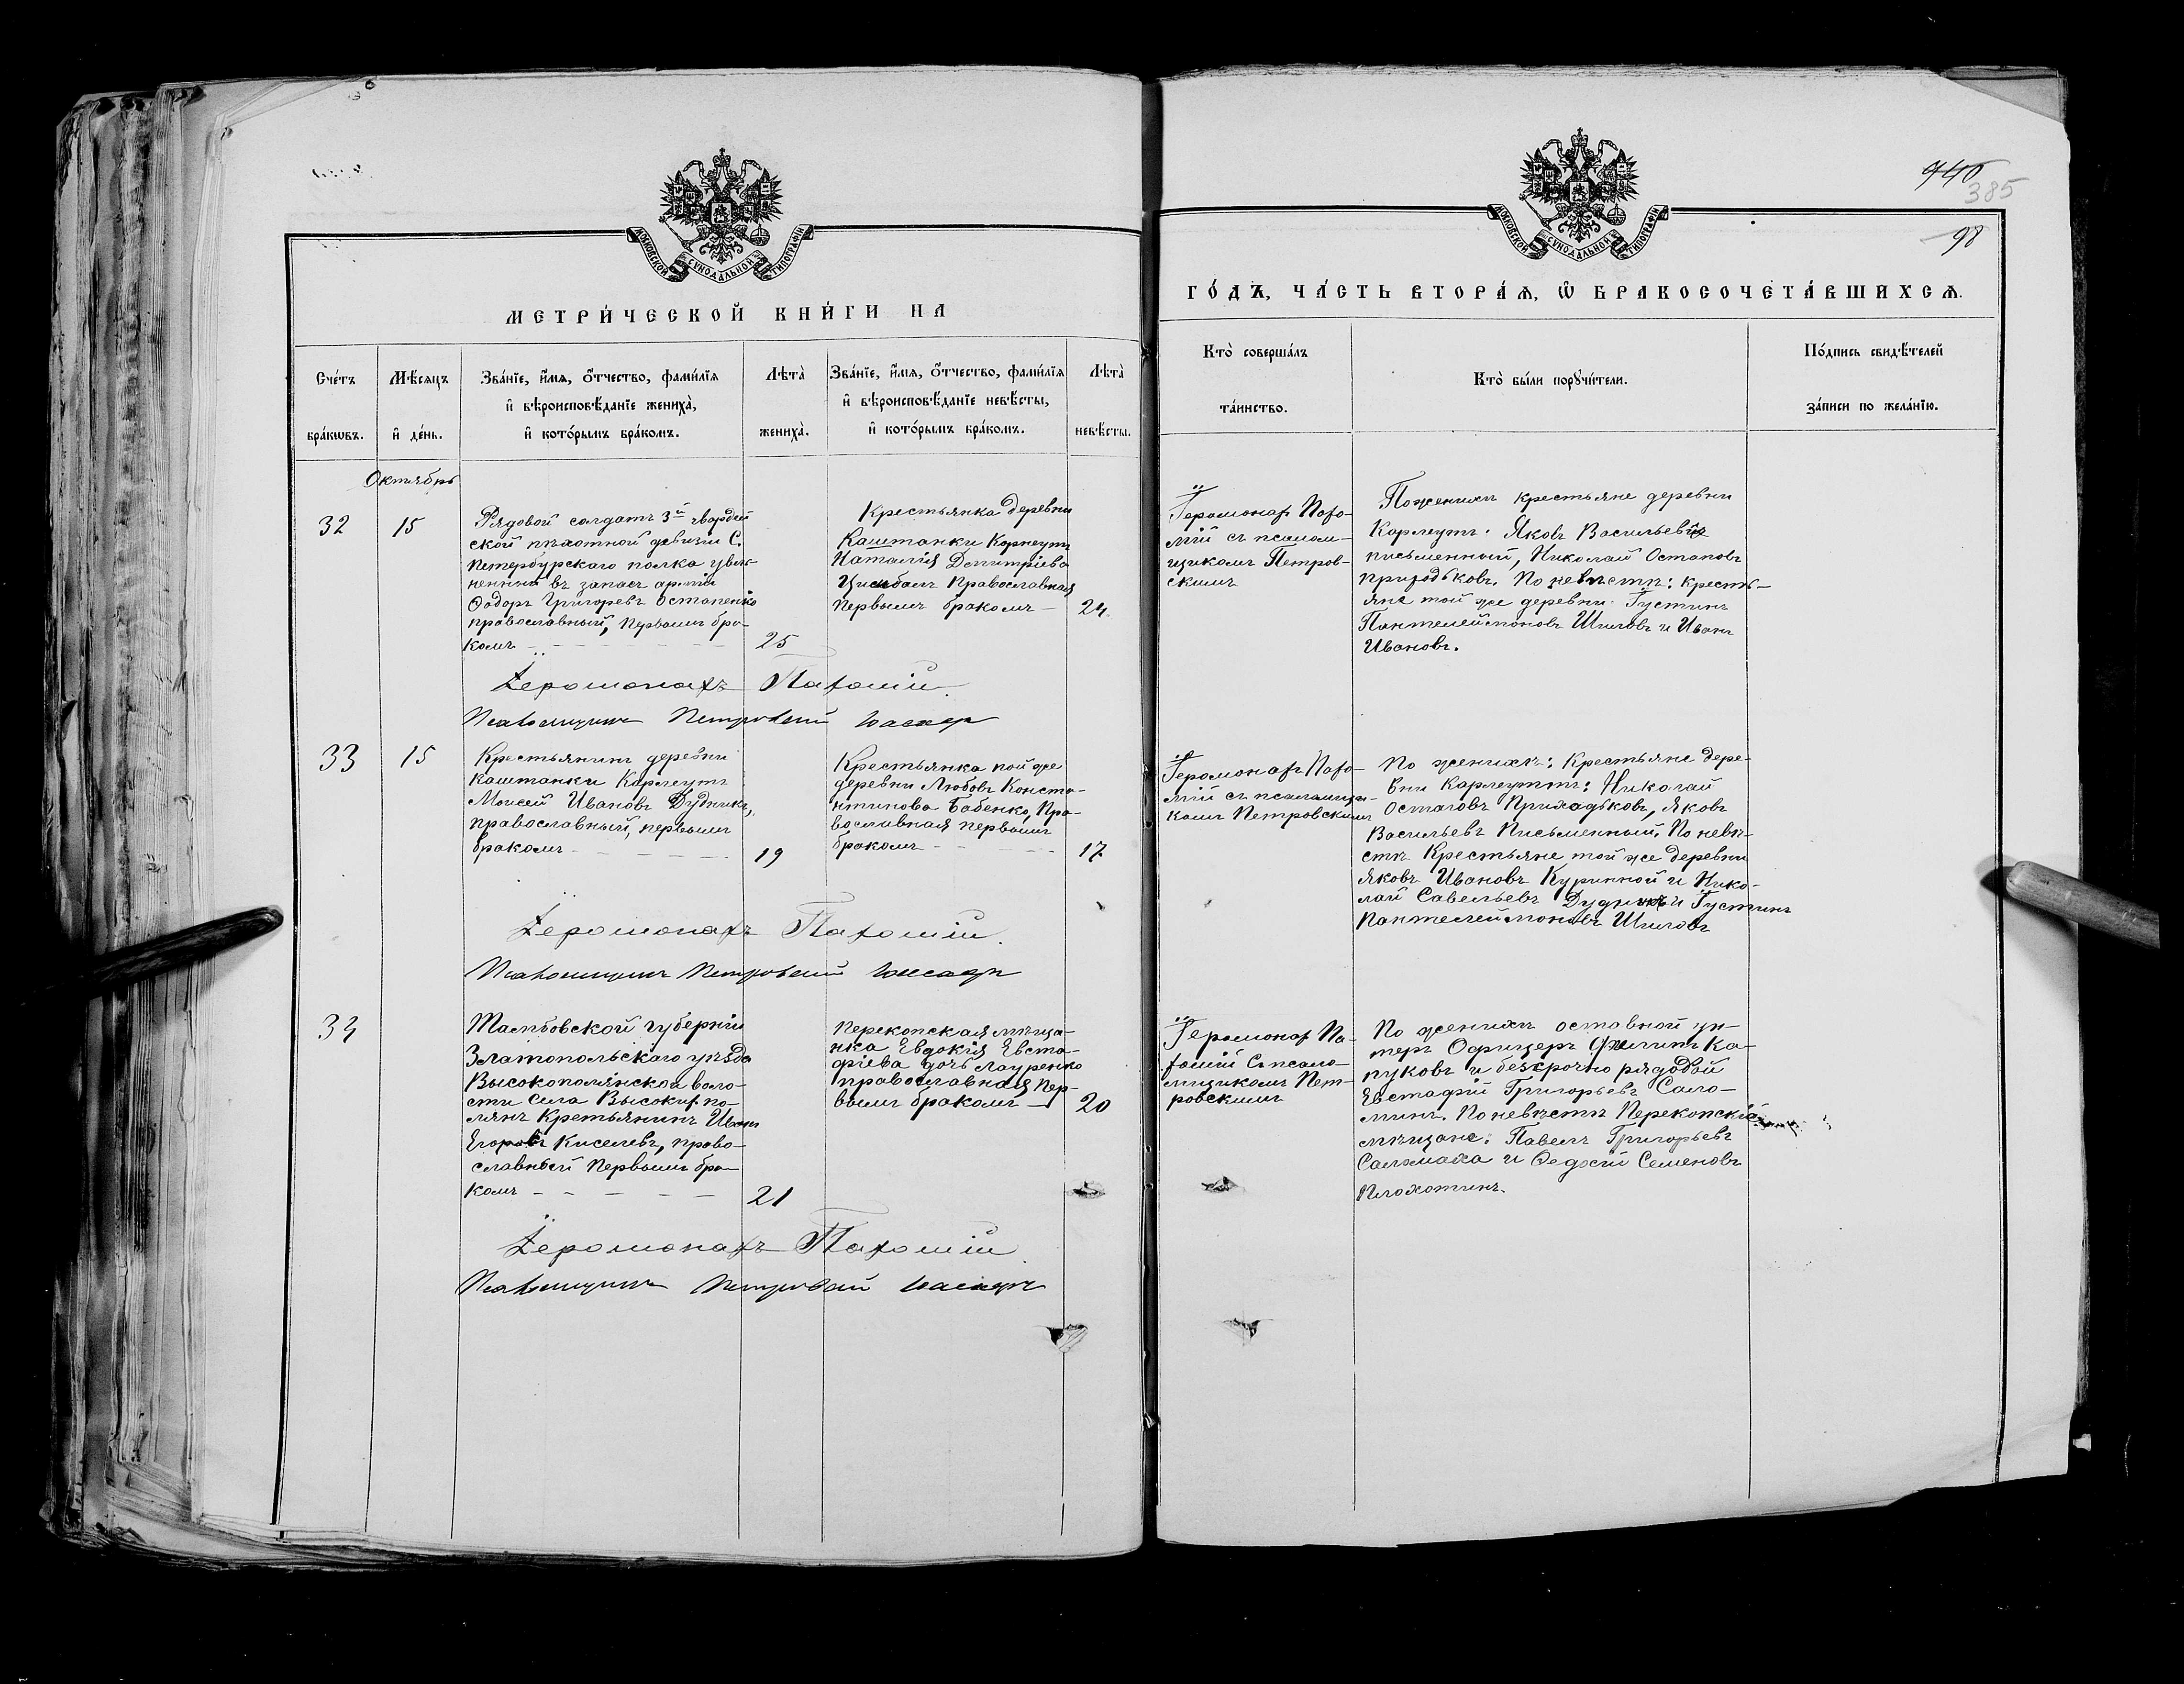 МОСКОВСКОЙ СѴНОДАЛЬНОЙ ТИПОГРАФІИ
МЕТРИ́ЧЕСКОЙ КНИ́ГИ НА
Сче́тъ бра́кѡвъ.
Мѣ́сяцъ и҆ де́нь.
Зва́нїе, и҆́мя, ѻ҆́тчество, фами́лїя
и҆ вѣроисповѣ́данїе жениха̀,
и҆ кото́рымъ бра́комъ.
Лѣта̀ жениха̀.
Зва́нїе, и҆́мя, ѻ҆́тчество, фами́лїя
и҆ вѣроисповѣ́данїе невѣ́сты,
и҆ кото́рымъ бра́комъ.
Лѣта̀ невѣ́сты.
Октябрь
32
15
Рядовой солдатъ 3й гвардей
ской пѣхотной дивизіи С.
Петербурскаго полка уволь-
ненный въ запасъ арміи
Ѳодоръ Григорьевъ Остапенко
православный, первымъ бра-
комъ
25
Крестьянка деревни
Каштанки Карлеутъ
Наталія Дмитріева
Цимбалъ Православная
первымъ бракомъ
24
Іеромонахъ Пахомій
Псаломщикъ Петровскій
33
15
Крестьянинъ деревни
Каштанки Карлеутъ
Моисей Ивановъ Дудникъ,
православный, первымъ
бракомъ
19
Крестьянка той же
деревни Любовь Конста-
нтинова Бабенко, Пра-
вославная первымъ
бракомъ
17
Іеромонахъ Пахомій.
Псаломщикъ Петровскій
34
Тамбовской губерніи
Златопольскаго уѣзда
Высокополянской воло-
сти села Высокихъ по-
лянъ Кретьянинъ Иванъ
Егоровъ Киселевъ, право-
славный Первымъ бра-
комъ
21
Перекопская мѣща-
нка Евдокія Евста-
фіева дочь Лауренко
православная Пер-
вымъ бракомъ
20
Іеромонахъ Пахомій
Псаломщикъ Петровскій
МОСКОВСКОЙ СѴНОДАЛЬНОЙ ТИПОГРАФІИ
385
98
ГО́ДЪ, ЧА́СТЬ ВТОРА́Я, Ѡ҆ БРАКОСОЧЕТА́ВШИХСЯ.
Кто̀ соверша́лъ
та́инство.
Кто̀ бы́ли порꙋчи́тели.
По́дпись свидѣ́телей
за́писи по жела́нїю.
Іеромонах Пахо-
мій съ псалом-
щикомъ Петров-
скимъ
По женихѣ крестьяне деревни
Карлеутъ: Яковъ Васильевъ
письменный, Николай Остаповъ
приходьковъ. По невѣстѣ: кресть-
яне той же деревни: Густинъ
Пантелеймоновъ Шиловъ и Иванъ
Ивановъ.
Іеромонах Пахо-
мій съ псаломщи-
комъ Петровскимъ
По женихѣ: Крестьяне дере-
вни Карлеутъ: Николай
Остаповъ Приходьковъ, Яковъ
Васильевъ Письменный. По невѣ-
стѣ Крестьяне той же деревни
Яковъ Ивановъ Куринной и Нико-
лай Савельевъ Дудникъ и Густинъ
Пантелеймоновъ Шиловъ
Іеромонах Па-
хомій С псало-
мщикомъ Пет-
ровскимъ
По женихѣ отставной ун-
теръ Офицеръ Филипъ Ка-
пуковъ и безсрочно рядовой
Евстафій Григорьевъ Сало-
минъ. По невѣстѣ Перекопскіе
мѣщане: Павелъ Григорьевъ
Саломаха и Ѳедосій Семеновъ
Плохотинъ.